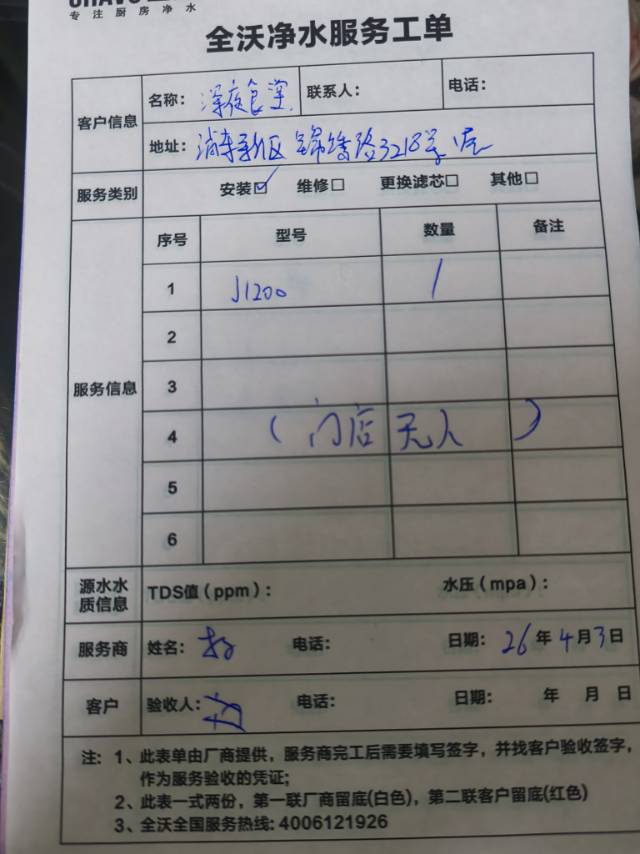 专注厨房净水
全沃净水服务工单
客户信息
名称：深夜食堂
联系人：
电话：
地址：浦东新区锦绣路3218号
服务类别
安装☑ 维修□ 更换滤芯□ 其他□
服务信息
序号 型号 数量 备注
1 J1200 1
2
3
4 （门店无人）
5
6
源水水质信息
TDS值（ppm）： 水压（mpa）：
服务商 姓名： 电话： 日期：26年4月3日
客户 验收人： 电话： 日期： 年 月 日
注：1、此表单由厂商提供，服务商完工后需要填写签字，并找客户验收签字，
作为服务验收的凭证；
2、此表一式两份，第一联厂商留底(白色)，第二联客户留底(红色)
3、全沃全国服务热线: 4006121926